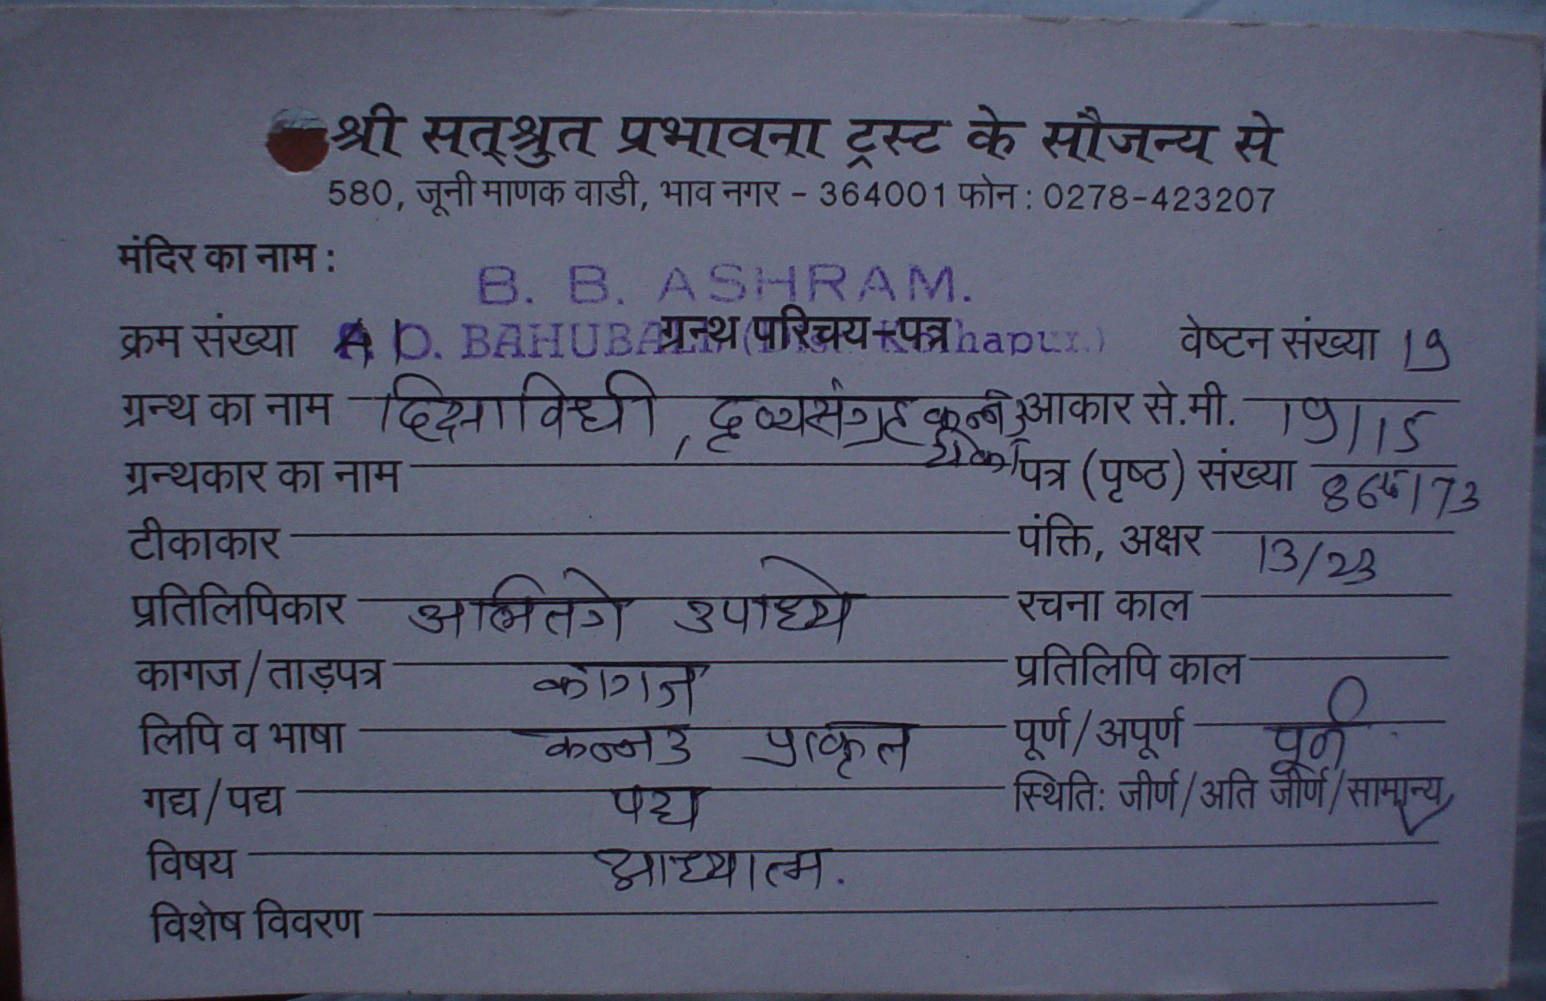 श्री सत्‌श्रुत प्रभावना ट्रस्ट के सौजन्य से
580, जूनी माणक वाडी, भाव नगर - 364001 फोन : 0278-423207
मंदिर का नाम :
B. B. ASHRAM.
क्रम संख्या A D. BAHUBALI ग्रन्थ परिचय-पत्र वेष्टन संख्या 19
ग्रन्थ का नाम दिक्षाविधी, द्रव्यसंग्रह कन्नड आकार से.मी. 19/15
टीका
ग्रन्थकार का नाम पत्र (पृष्ठ) संख्या
टीकाकार पंक्ति, अक्षर 13/23
प्रतिलिपिकार उपाध्ये रचना काल
कागज/ताड़पत्र कागज प्रतिलिपि काल
लिपि व भाषा कन्नड प्राकृत पूर्ण/अपूर्ण पूर्ण
गद्य/पद्य पद्य स्थिति: जीर्ण/अति जीर्ण/सामान्य
विषय आध्यात्म.
विशेष विवरण